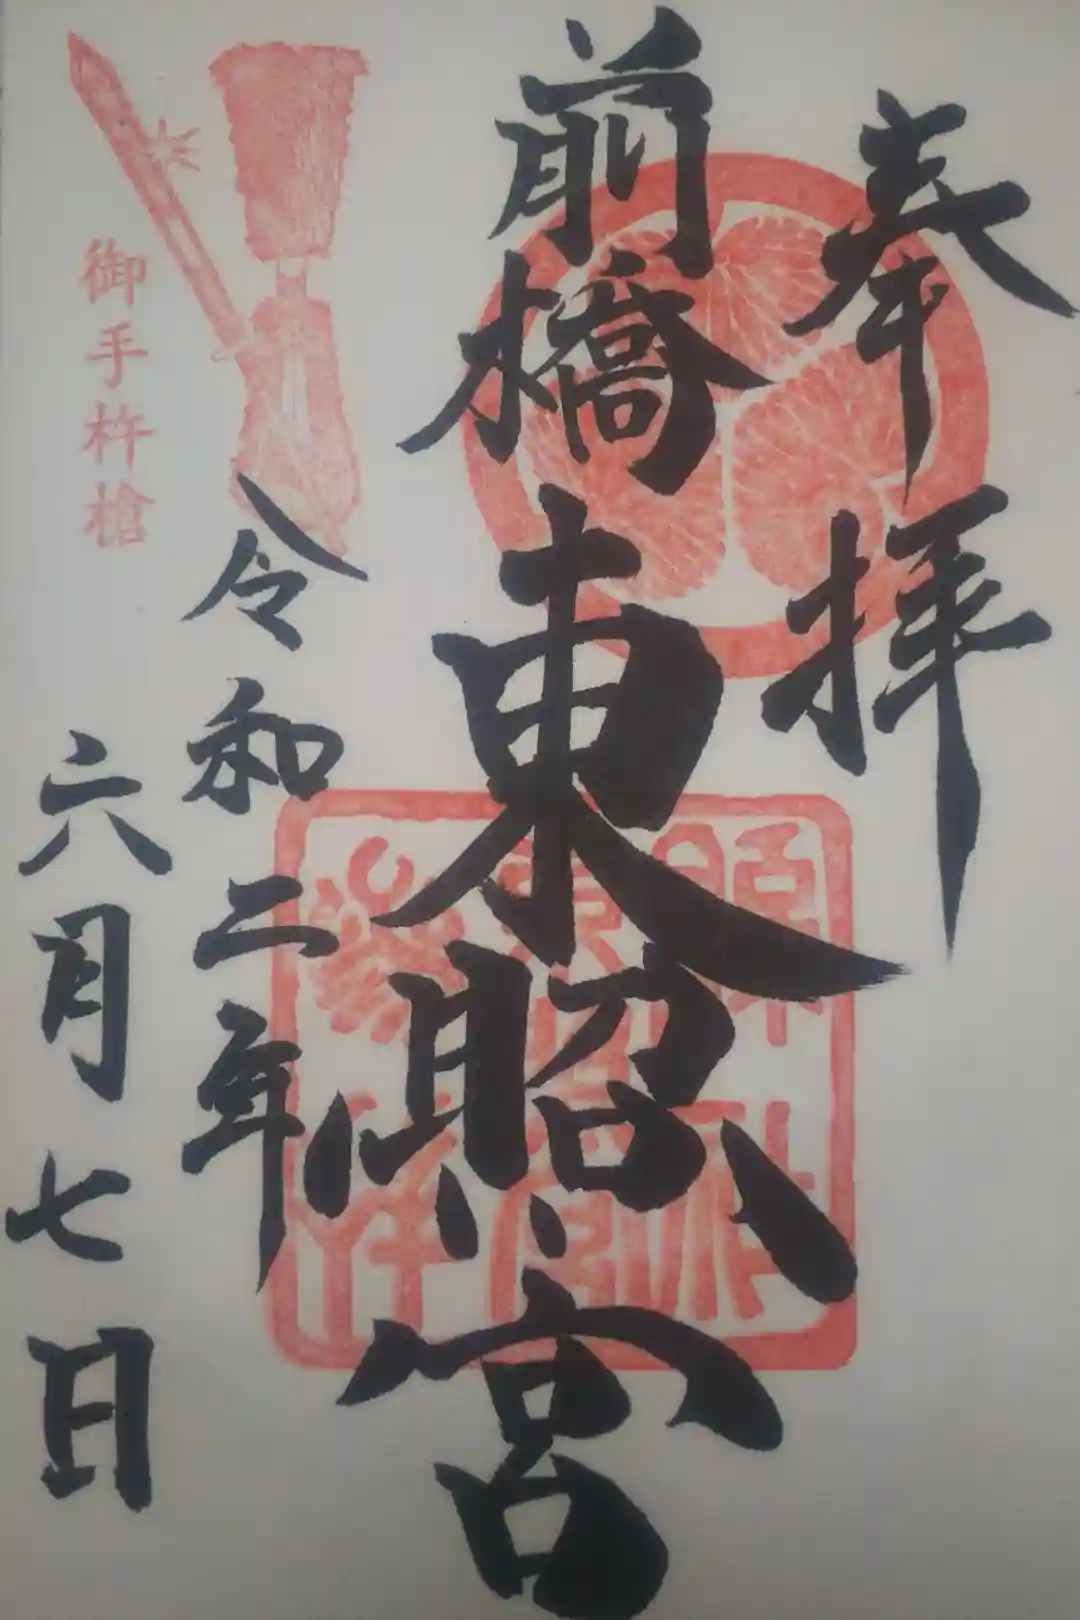 奉拝
前橋東照宮
令和二年
六月七日
御手杵槍